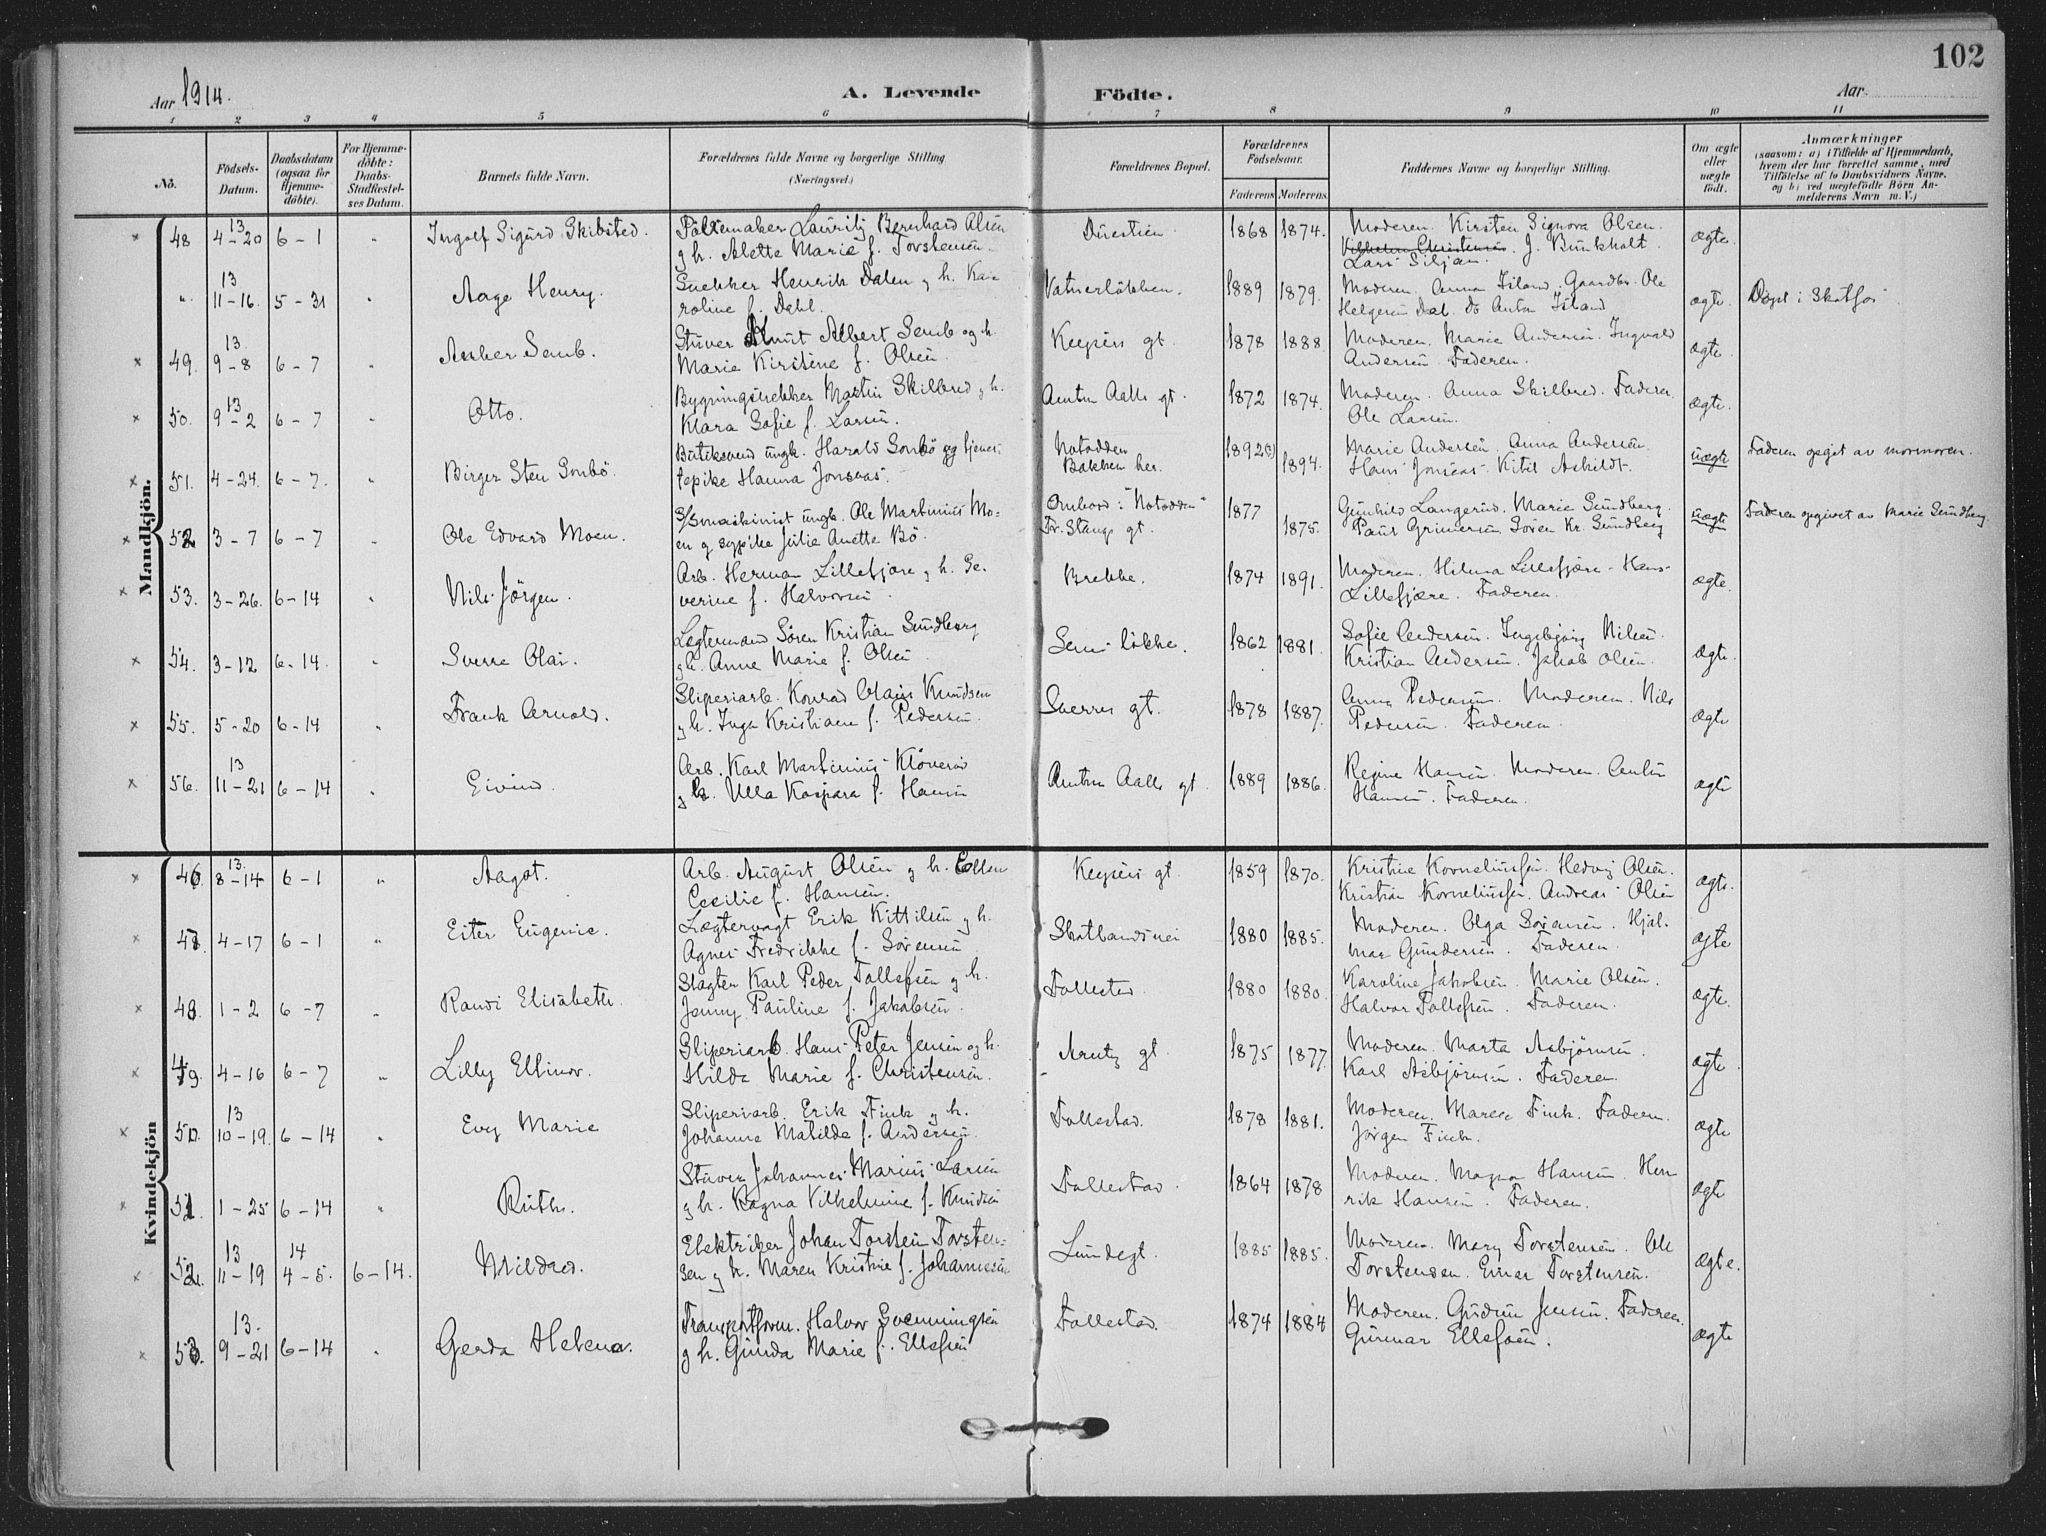 102
Aar 1914.
A. Levende Födte.
Aar
1 2 3 4 5 6 7 8 9 10 11
No.
Födsels-
Datum.
Daabsdatum
(ogsaa for
Hjemme-
döbte).
For Hjemme-
döbte:
Daabs-
Stadfæstel-
ses Datum.
Barnets fulde Navn.
Forældrenes fulde Navne og borgerlige Stilling
(Næringsvei.)
Forældrenes Bopæl.
Forældrenes
Födselsaar.
Faderens Moderens
Faddernes Navne og borgerlige Stilling.
Om ægte
eller
uægte
födt.
Anmærkninger
(saasom: a) i Tilfælde af Hjemmedaab,
hvem der har forrettet samme, med
Tilföielse af to Daabsvidners Navne,
og b) ved uægtefödte Börn An-
melderens Navn m. V.)
Mandkjön.
48 13 4-20 6-1 " Ingolf Sigurd Skibsted. Lauritz Bernhard Olsen
g h. Alette Marie f. Torstensen. 1868 1874. Moderen. Kirsten Signora Olsen.
J. Bunkholt.
Lars Siljan. ægte.
" 13 11-16. 5-31 " Aage Henry. Snekker Henrik Dalen g h. Ka-
roline f. Dahl. 1889 1879. Moderen. Anna Island. Gaardbr. Ole
Helgesen Dal. Do Anton Island ægte. Døpt i Skotfos
49. 13. 9-8 6-7 " Asker Semb. Stuver Knut Albert Semb og h.
Marie Kirstine f. Olsen. Keysers gt. 1878 1888. Moderen. Marie Andersen. Ingvald
Andersen. Faderen. ægte.
50. 13 9-2 6-7 " Otto. Bygningssnekker Martin Skilbred g h.
Klara Sofie f. Larsen. Amtm Aalls gt. 1872 1874. Moderen. Anna Skilbred. Faderen.
Ole Larsen. ægte.
51. 4-24. 6-7. " Birger Sten Sonbö. Butiksvend ungk. Harald Sonbö og tjenes-
tepike Hanna Jonsaas. Notodden
Bakken her. 1892(?) 1894. Marie Andersen. Anna Andersen.
Hans Jonsaas. Kitil Askildt. uægte Faderen opgit av mormoren.
52 3-7 6-7 " Ole Edvard Moen. S/Smaskinist ungk. Ole Martinius Mo-
en g sypike Julie Anette Bö. Ombord i "Notodden"
Fr. Stangs gt. 1877 1875. Gunhild Langerud. Marie Sundberg.
Paul Grimersen Sören Kr. Sundberg uægte Faderen opgivet av Marie Sundberg
53. 3-26. 6-14 " Nils Jörgen. Arb. Herman Lillefjære g h. Se-
verine f. Halvorsen. Brekke. 1874 1891. Moderen. Helma Lillefjære. Hans
Lillefjære. Faderen. ægte.
54. 3-12 6-14. " Sverre Olai. Lægtermand Sören Kristian Sundberg
g h. Anne Marie f. Olsen. Sems lökke. 1862 1881. Sofie Andersen. Ingebjörg Nilsen.
Kristian Andersen. Jakob Olsen. ægte.
55. 5-20 6-14 " Frank Arnold. Sliperiarb. Konrad Olaus Knudsen
g h. Inga Kristiane f. Pedersen. Sverres gt. 1878 1887. Anna Pedersen. Moderen. Nils
Pedersen. Faderen. ægte
56. 13 11-21 6-14 " Eivind. Arb. Karl Martinius Klöverød
g h. Ulla Kaspara f. Hansen Amtm Aalls gt. 1889 1886. Regine Hansen. Moderen. Anton
Hansen. Faderen. ægte
Kvindekjön
46. 13. 8-14 6-1 " Aagot. Arb. August Olsen g h. Ellen
Cecilie f. Hansen. Keysers gt. 1859 1870. Kristine Korneliussen. Hedvig Olsen.
Kristian Korneliussen. Andreas Olsen ægte.
47. 4-17 6-1 " Ester Eugenie. Lægtervagt Erik Kittilsen g h.
Agnes Fredrikke f. Sörensen Skotlandsvei 1880 1885. Moderen. Olga Sörensen. Hjal-
mar Gundersen. Faderen. ægte
48. 1-2 6-7 " Randi Elisabeth. Slagter Karl Peder Tollefsen g h.
Jenny Pauline f. Jakobsen. Follestad. 1880 1880. Karoline Jakobsen. Marie Olsen.
Halvor Tollefsen. Faderen. ægte.
49. 4-16 6-7 " Lilly Ellinor. Sliperiarb. Hans Peter Jensen og h.
Hilda Marie f. Christensen. Arentz gt. 1875 1877. Moderen. Marta Asbjörnsen.
Karl Asbjörnsen. Faderen. ægte.
50. 13 10-19. 6-14 " Evy Marie Sliperiarb. Erik Fink g h.
Johanne Matilde f. Andersen. Follestad. 1878 1881. Moderen. Maren Fink. Faderen.
Jörgen Fink. ægte
51. 1-25 6-14 " Ruth. Stuver Johannes Marius Larsen
g h. Ragna Vilhelmine f. Knudsen Follestad. 1864 1878 Moderen. Magna Hansen. Hen
rik Hansen. Faderen. ægte
52. 13 11-19 14 4-5. 6-14. Mildred. Elektriker Johan Torstein Torsten-
sen g h. Maren Kristine f. Johannesen Lundegt. 1885 1885. Moderen. Mary Torstensen. Ole
Torstensen. Einar Torstensen. ægte.
53. 13. 9-21 6-14 " Gerda Helena. Transportform. Halvor Svenningsen
g h. Gunda Marie f. Ellefsen Follestad. 1874 1884 Moderen. Gudrun Jensen. Faderen.
Gunnar Ellefsen. ægte